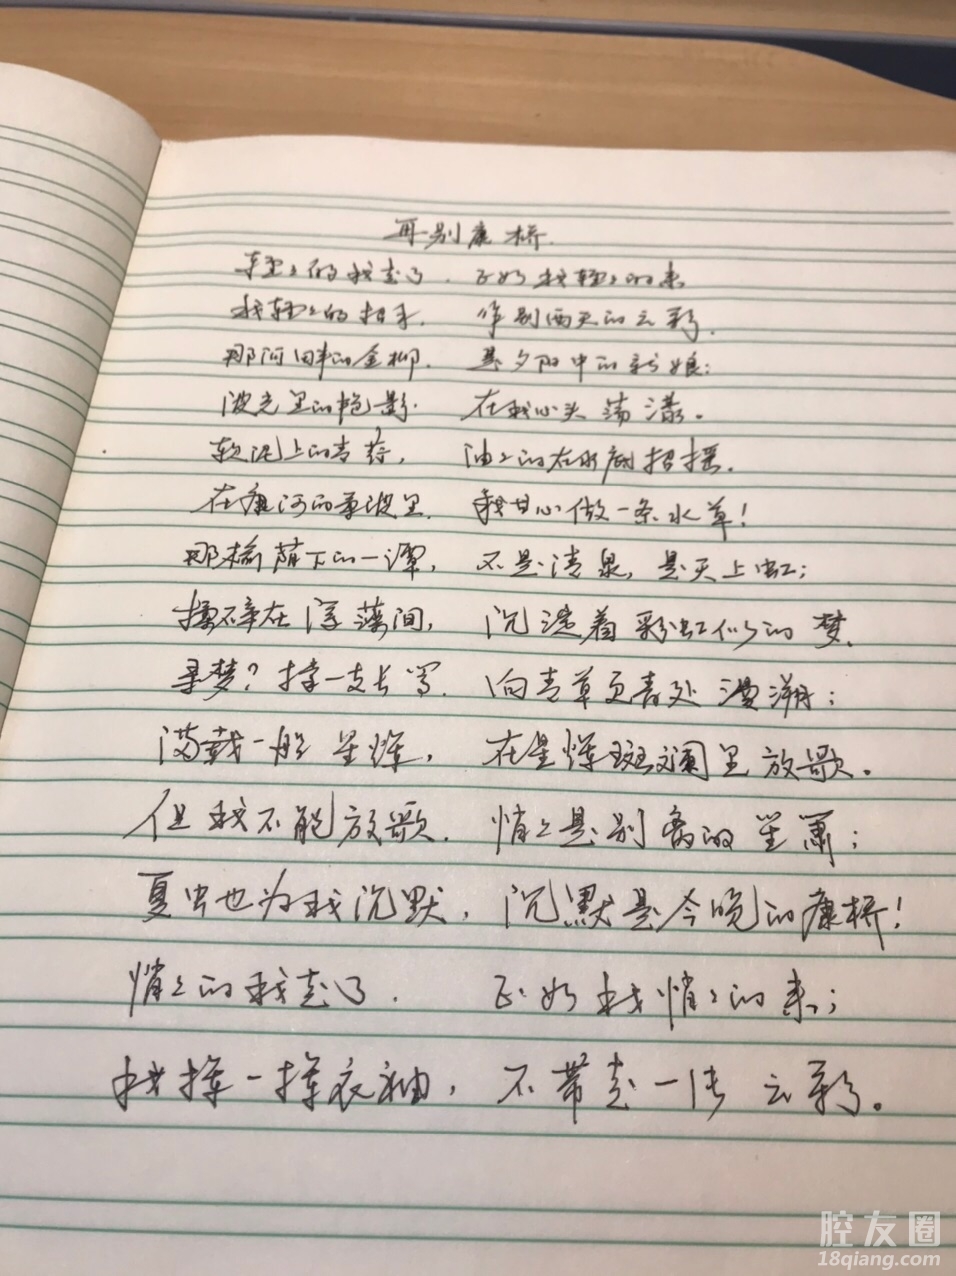 再别康桥
轻轻的我走了，正如我轻轻的来
我轻轻的招手，作别西天的云彩，
那河畔的金柳，是夕阳中的新娘；
波光里的艳影，在我心头荡漾。
软泥上的青荇，油油的在水底招摇，
在康河的柔波里，我甘心做一条水草！
那榆荫下的一潭，不是清泉，是天上虹；
揉碎在浮藻间，沉淀着彩虹似的梦，
寻梦？撑一支长篙，向青草更青处漫溯；
满载一船星辉，在星辉斑斓里放歌。
但我不能放歌，悄悄是别离的笙箫；
夏虫也为我沉默，沉默是今晚的康桥！
悄悄的我走了，正如我悄悄的来；
我挥一挥衣袖，不带走一片云彩。
腔友圈
18qiang.com